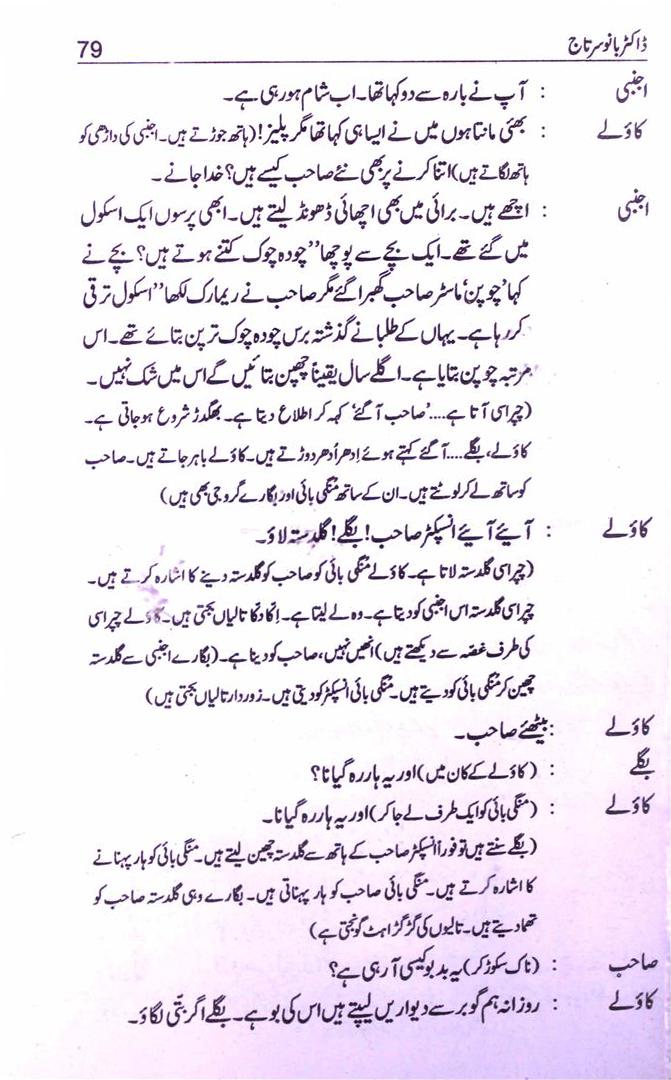 ڈاکٹر بانو سرتاج 79
اجنبی : آپ نے بارہ سے دو کہا تھا۔ اب شام ہو رہی ہے۔
کاؤلے : بھئی مانتا ہوں میں نے ایسا ہی کہا تھا مگر پلیز! (ہاتھ جوڑتے ہیں۔ اجنبی کی داڑھی کو
ہاتھ لگاتے ہیں) اتنا کرنے پر بھی نئے صاحب کیسے ہیں؟ خدا جانے۔
اجنبی : اچھے ہیں۔ برائی میں بھی اچھائی ڈھونڈ لیتے ہیں۔ ابھی پرسوں ایک اسکول
میں گئے تھے۔ ایک بچے سے پوچھا ’’چودہ چوک کتنے ہوتے ہیں؟ بچے نے
کہا ’چوپن‘ ماسٹر صاحب گھبرا گئے مگر صاحب نے ریمارک لکھا ’’اسکول ترقی
کر رہا ہے۔ یہاں کے طلبا نے گذشتہ برس چودہ چوک ترپن بتائے تھے۔ اس
مرتبہ چوپن بتایا ہے۔ اگلے سال یقیناً چھپن بتائیں گے اس میں شک نہیں۔
(چپراسی آتا ہے.... ’صاحب آ گئے‘ کہہ کر اطلاع دیتا ہے۔ بھگدڑ شروع ہو جاتی ہے۔
کاؤلے، بگلے.... آ گئے کہتے ہوئے اِدھر اُدھر دوڑتے ہیں۔ کاؤلے باہر جاتے ہیں۔ صاحب
کو ساتھ لے کر لوٹتے ہیں۔ ان کے ساتھ منگی بائی اور بگارے گرو جی بھی ہیں)
کاؤلے : آیئے آیئے انسپکٹر صاحب! بگلے! گلدستہ لاؤ۔
(چپراسی گلدستہ لاتا ہے۔ کاؤلے منگی بائی کو صاحب کو گلدستہ دینے کا اشارہ کرتے ہیں۔
چپراسی گلدستہ اس اجنبی کو دیتا ہے۔ وہ لے لیتا ہے۔ اِکا دُکا تالیاں بجتی ہیں۔ کاؤلے چپراسی
کی طرف غصہ سے دیکھتے ہیں) انھیں نہیں، صاحب کو دینا ہے۔ (بگارے اجنبی سے گلدستہ
چھین کر منگی بائی کو دیتے ہیں۔ منگی بائی انسپکٹر کو دیتی ہیں۔ زوردار تالیاں بجتی ہیں)
کاؤلے : بیٹھئے صاحب۔
بگلے : (کاؤلے کے کان میں) اور یہ ہار رہ گیا نا؟
کاؤلے : (منگی بائی کو ایک طرف لے جا کر) اور یہ ہار رہ گیا نا۔
(بگلے سنتے ہیں تو فوراً انسپکٹر صاحب کے ہاتھ سے گلدستہ چھین لیتے ہیں۔ منگی بائی کو ہار پہنانے
کا اشارہ کرتے ہیں۔ منگی بائی صاحب کو ہار پہناتی ہیں۔ بگارے وہی گلدستہ صاحب کو
تھما دیتے ہیں۔ تالیوں کی گڑگڑاہٹ گونجتی ہے)
صاحب : (ناک سکوڑ کر) یہ بدبو کیسی آ رہی ہے؟
کاؤلے : روزانہ ہم گوبر سے دیواریں لیپتے ہیں اس کی بو ہے۔ بگلے اگر بتّی لگاؤ۔